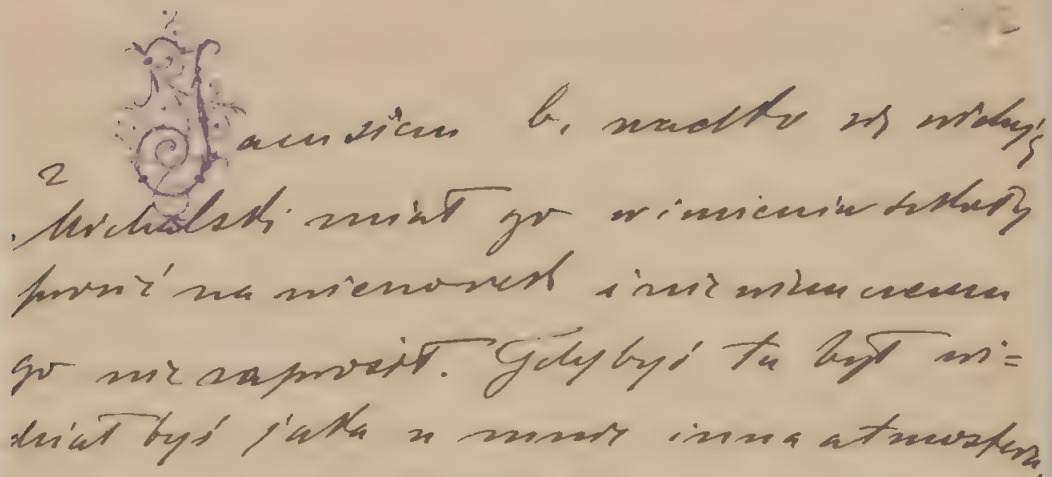 Janusiem b. rzadko się widuję
2
Michalski miał go w imieniu szkoły
prosić na wieczorek i nie wiem czemu
go nie zaprosił. Gdybyś tu był wi=
dział byś jaka u mnie inna atmosfera,